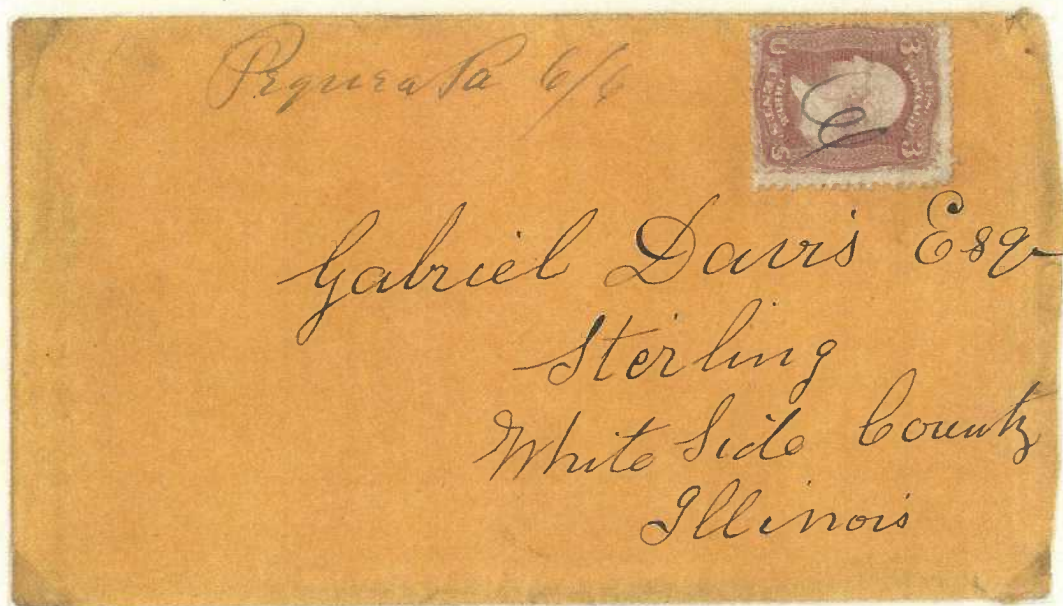 Pequea Pa 6/6
U 3
S 3
Gabriel Davis Esq
Sterling
White Side County
Illinois